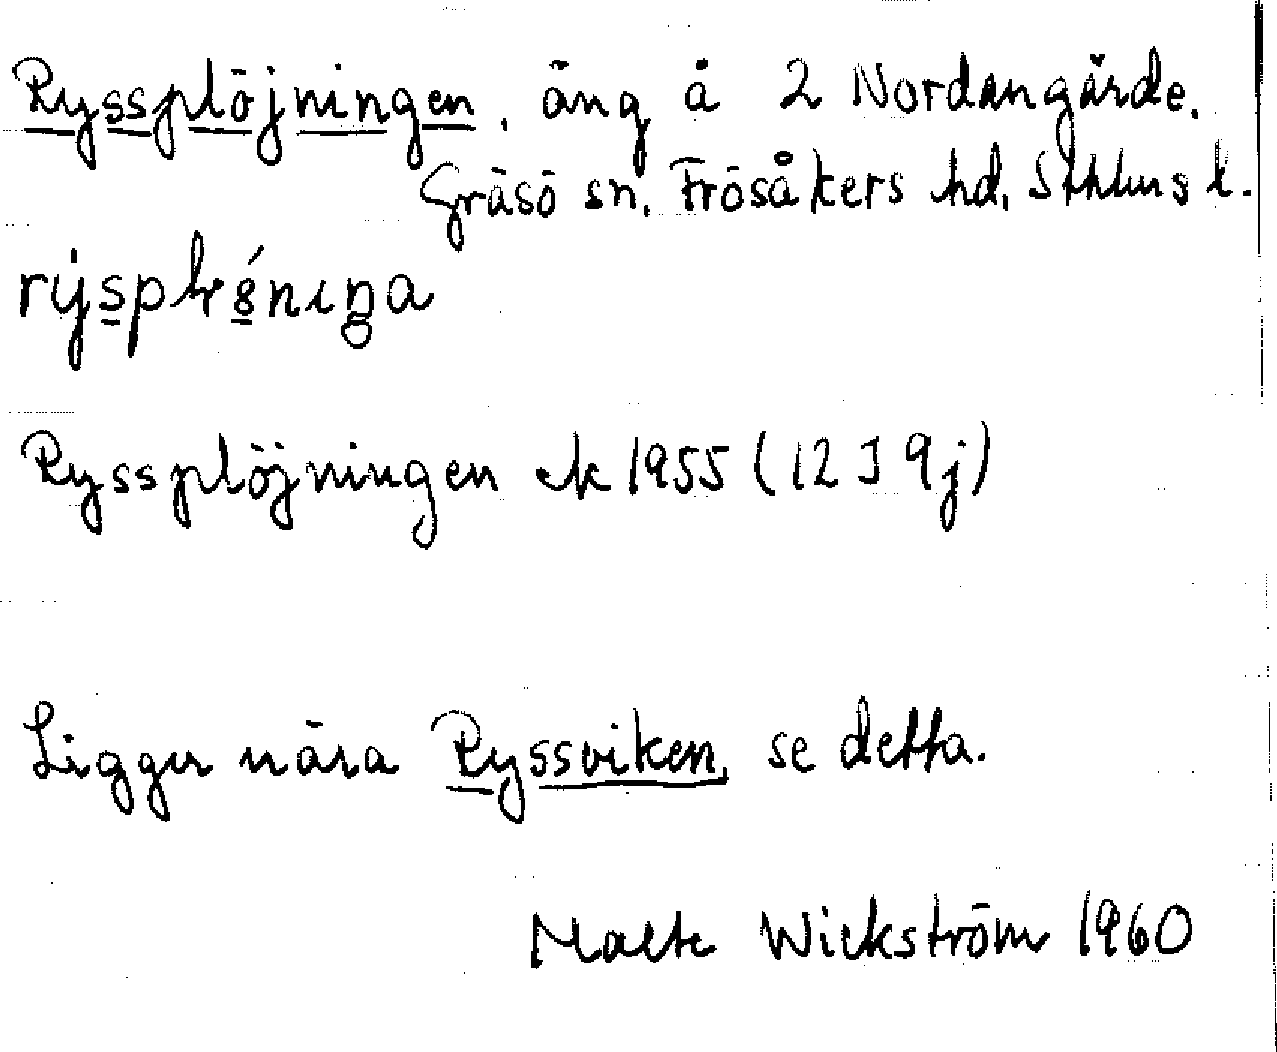 Ryssplöjningen, äng å 2 Nordangärde.
Gräsö sn. Frösåkers hd. Sthlms l.
Ryssplöjningen ek 1955 (12 J 9j)
Ligger nära Ryssviken, se detta.
Malte Wickström 1960